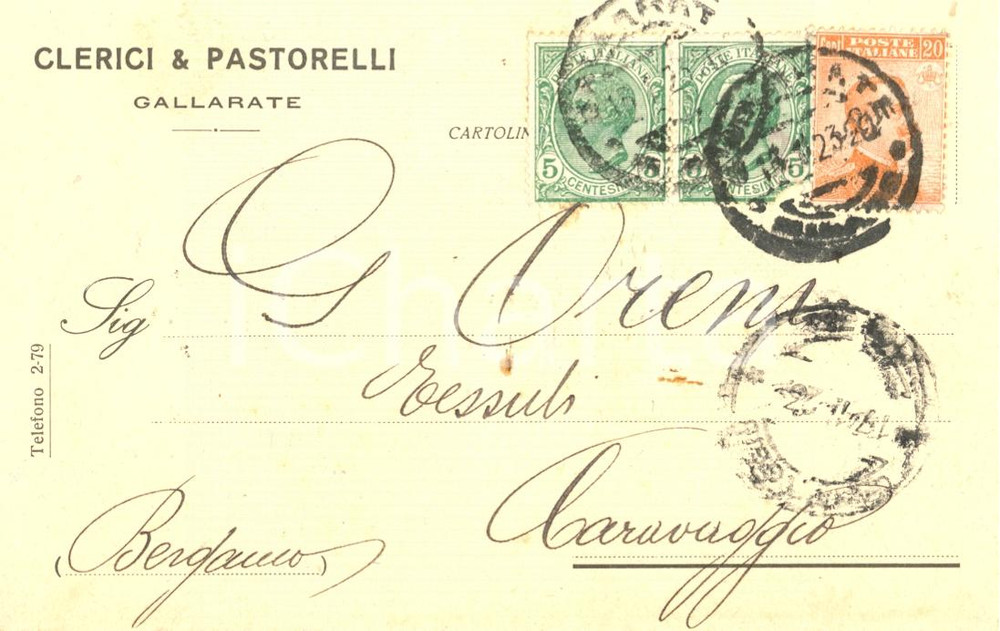 CLERICI & PASTORELLI
GALLARATE
CARTOLIN
POSTE ITALIANE
5 5
CENTESIMI
POSTE ITALIANE
5 5
CENTESIMI
POSTE ITALIANE 20
Sig G Oreni
Tessuti
Caravaggio
(Bergamo)
Telefono 2-79